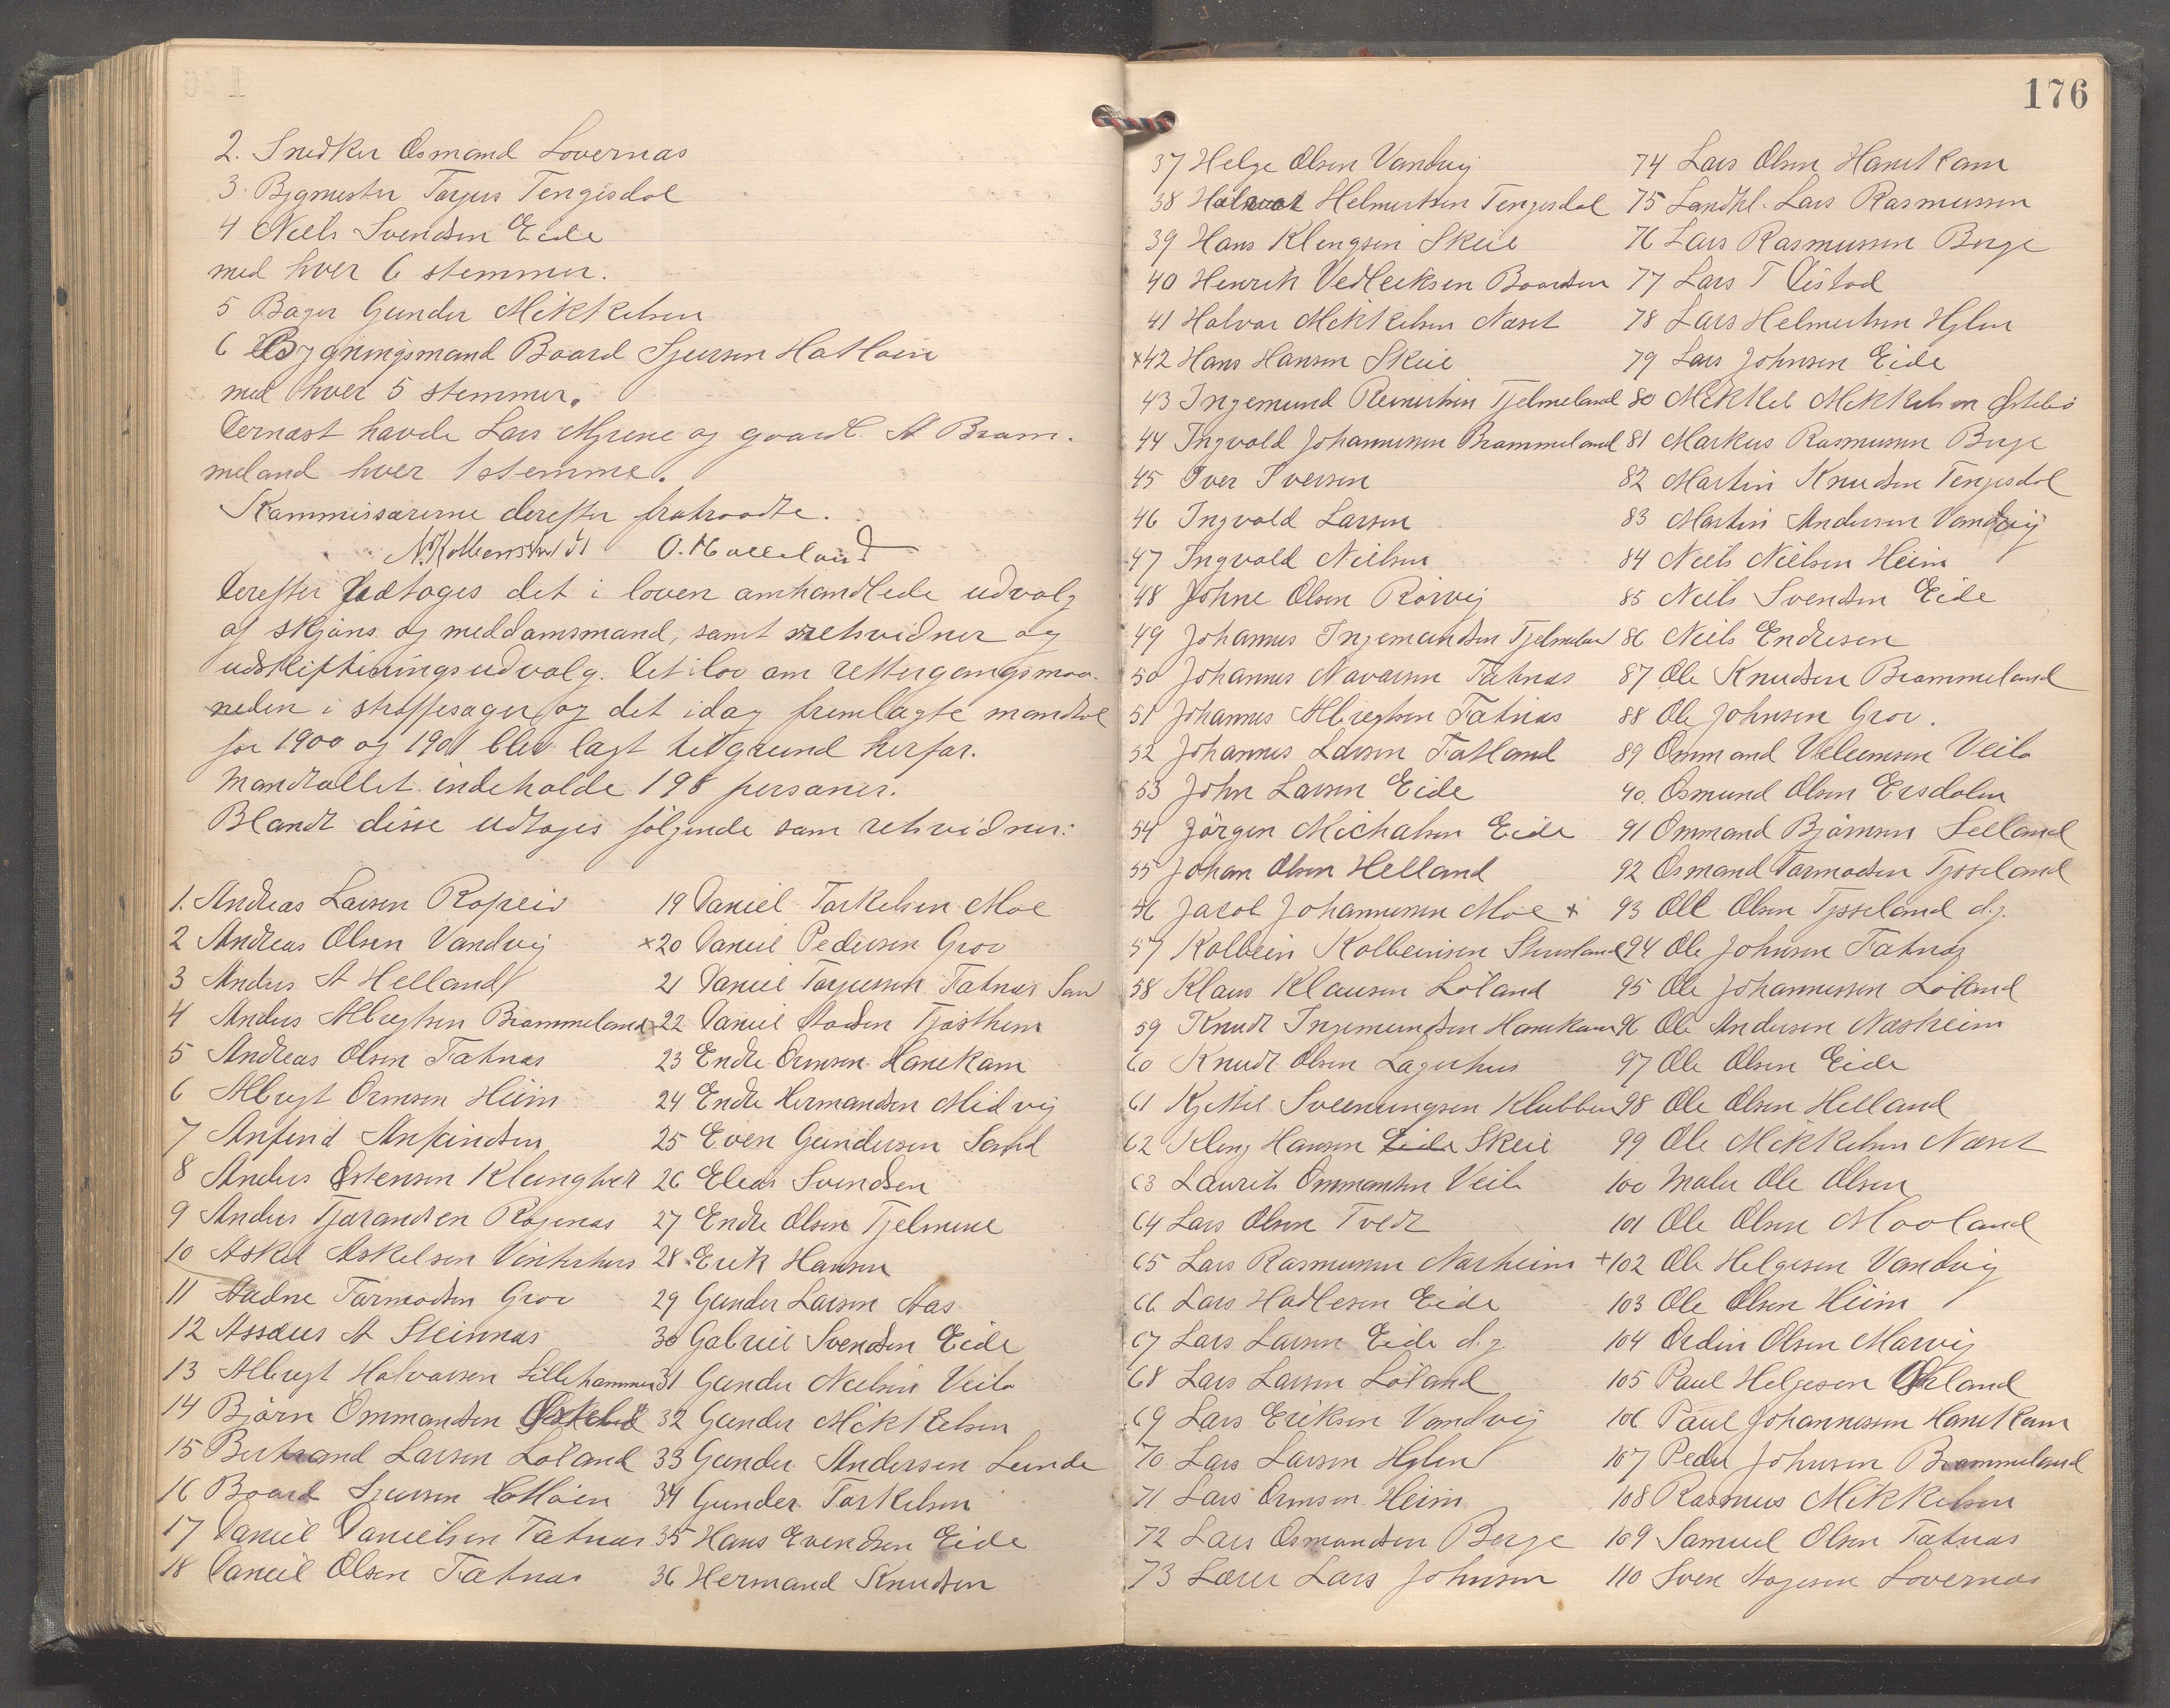 2. Snedker Osmund Lovernæs
3 Bygmester Torjus Tengesdal
4 Niels Svendsen Eide
med hver 6 stemmer.
5 Bager Gunder Mikkelsen
6 Bygningsmand Baard Sjursen
med hver 5 stemmer.
Dernæst havde Lars Myrene og gaardl. A Bram-
meland hver 1 stemme.
Kommissærerne derefter fratraadte.
Derefter foretoges det i loven omhandlede udvalg
af skjøns og meddomsmænd, samt retsvidner og
udskiftningsudvalg. Det i lov om rettergangsmaa-
neden i straffesager og det idag fremlagte mandtal
for 1900 og 1901 blev lagt tilgrund herfor.
Mandtallet indeholde 198 personer.
Blandt disse udtoges følgende som retsvidner:
1. Andreas Larsen Ropeid
2 Andreas Olsen Vandvig
3 Anders A Helland
4 Anders Albregtsen Brommeland
5 Andreas Olsen Fatnæs
6 Albregt Ormsen Heim
7 Anfind Anfindsen
8 Anders Østensen
9 Anders Tjærandsen
10 Askel Askelsen Vinterhus
11 Aadne Tormodsen Grov
12 Assæus A Steinnæs
13 Albregt Halvorsen Lillehammer
14 Bjørn Ommundsen
15 Bertrand Larsen Løland
16 Baard Sjursen
17 Daniel Danielsen Fatnæs
18 Daniel Olsen Fatnæs
19 Daniel Torkelsen Moe
x20 Daniel Pedersen Grov
21 Daniel Torjussen Fatnæs Sand
x22 Daniel Aadsen Tjøstheim
23 Endre Ormsen Hanekam
24 Endre Hermandsen Midvig
25 Even Gundersen Sand
26 Elias Svendsen
27 Endre Olsen Tjelmene
28 Erik Hansen
29 Gunder Larsen Aas
30 Gabriel Svendsen Eide
31 Gunder Nielsen Veila
32 Gunder Mikkelsen
33 Gunder Andersen Lunde
34 Gunder Torkelsen
35 Hans Evendsen Eide
36 Hermand Knudsen
176
37 Helge Olsen Vandvig
38 Halvor Helmertsen Tengesdal
39 Hans Klengsen Skeie
40 Henrik Vedleiksen Baardsen
41 Halvor Mikkelsen Næset
x42 Hans Hansen Skeie
43 Ingemund Reinertsen Tjelmeland
44 Ingvald Johannessen Brommeland
45 Iver Iversen
46 Ingvald Larsen
47 Ingvald Nielsen
48 Johne Olsen Rørvig
49 Johannes Ingemundsen Tjelmeland
50 Johannes Navarsen Fatnæs
51 Johannes Albregtsen Fatnæs
52 Johannes Larsen Fatland
53 John Larsen Eide
54 Jörgen Michalsen Eide
55 Johan Olsen Helland
56 Jacob Johannessen Moe x
57 Kolbein Kolbeinsen
58 Klaus Klausen Løland
59 Knudt Ingemundsen Hanekam
60 Knudt Olsen Lagerhus
61 Kjettel Sveenungsen Klubben
62 Kleng Hansen Eide Skeie
63 Laurits Ommundsen Veila
64 Lars Olsen Tvedt
65 Lars Rasmussen Nærheim
66 Lars Hadlesen Eide
67 Lars Larsen Eide d.y.
68 Lars Larsen Løland
69 Lars Eriksen Vandvig
70 Lars Larsen Hylen
71 Lars Ormsen Heim
72 Lars Osmundsen Berge
73 Lærer Lars Johnsen
74 Lars Olsen Hanekam
75 Landhl. Lars Rasmussen
76 Lars Rasmussen Berge
77 Lars T Østad
78 Lars Helmertsen Hylen
79 Lars Johnsen Eide
80 Mikkel Mikkelsen Østebø
81 Markus Rasmussen Berge
82 Martin Knudsen Tengesdal
83 Martin Andersen Vandvig
84 Niels Nielsen Heim
85 Niels Svendsen Eide
86 Niels Endresen
87 Ole Knudsen Brommeland
88 Ole Johnsen Grov.
89 Ommund Veleemsen Veila
90. Osmund Olsen Ersdalen
91 Ommund Bjørnsen Selland
92 Osmund Tormodsen Tysseland
93 Ole Olsen Tysseland d.y.
94 Ole Johnsen Fatnæs
95 Ole Johannessen Løland
96 Ole Andersen Næsheim
97 Ole Olsen Eide
98 Ole Olsen Helland
99 Ole Mikkelsen Næset
100 Maler Ole Olsen
101 Ole Olsen Mooland
+102 Ole Helgesen Vandvig
103 Ole Olsen Heim
104 Ordin Olsen Marvig
105 Paul Helgesen
106 Paul Johannessen Hanekam
107 Peder Johnsen Brommeland
108 Rasmus Mikkelsen
109 Samuel Olsen Fatnæs
110 Sven Aagesen Lovernæs